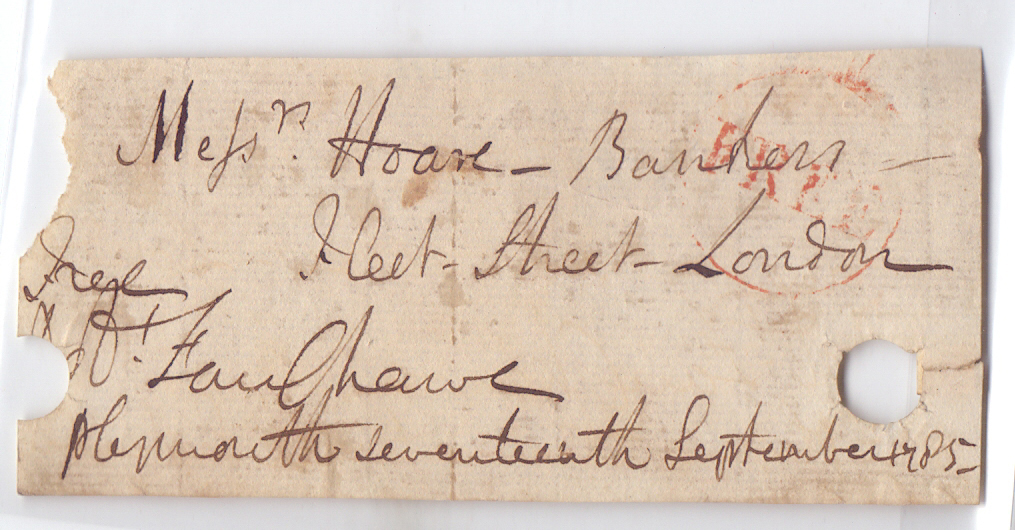 Messrs. Hoare - Bankers -
Fleet - Street - London
Free
Rt. Fanshawe
plymouth seventeenth September 1785-